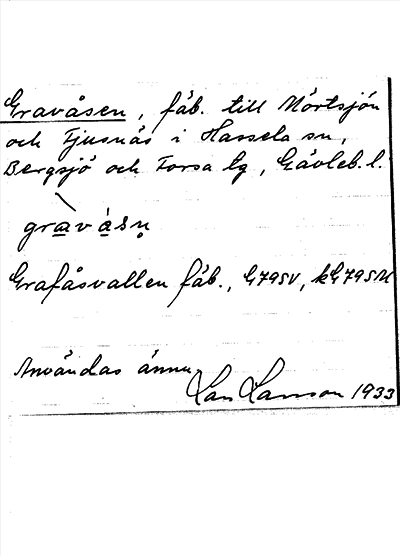 Gravåsen, fäb. till Mörtsjön
och Tjusnäs i Hassela sn,
Bergsjö och Forsa tg, Gävleb. l.
gravåsn̥
Grafåsvallen fäb., G79SV, kG79SV
Användas ännu.
Lars Larsson 1933